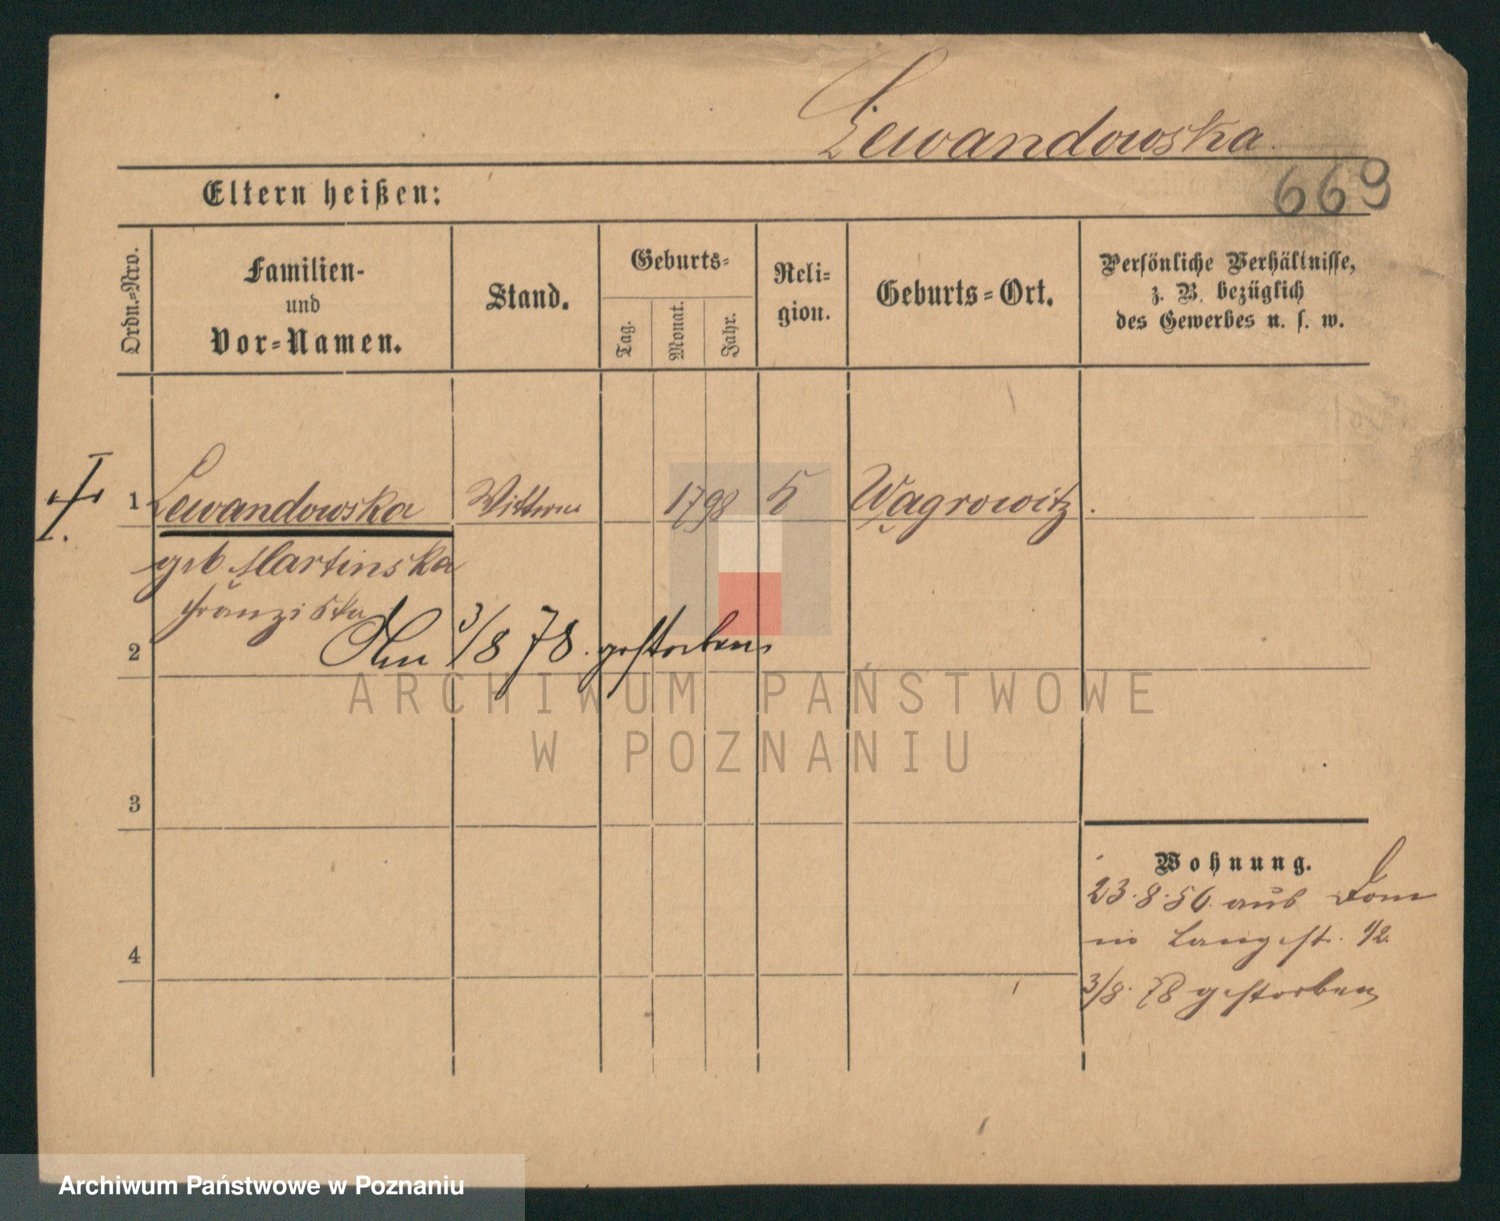 Lewandowska
669
Eltern heißen:
Ordn.-Nro.
Familien-
und
Vor-Namen.
Stand.
Geburts-
Tag.
Monat.
Jahr.
Reli-
gion.
Geburts-Ort.
Persönliche Verhältnisse,
z. B. bezüglich
des Gewerbes u. s. w.
1 Lewandowska Wittwe 1798 k Wągrowitz.
geb Martinska
Franziska
Am 3/8 78. gestorben
2
3
4
Wohnung.
23.8.56. aus Dom
in Langest. 1/2.
3/8. 78 gestorben
ARCHIWUM PAŃSTWOWE
W POZNANIU
Archiwum Państwowe w Poznaniu